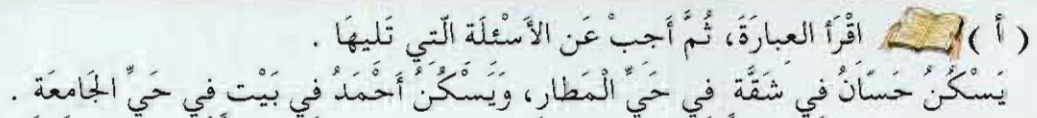 ( أ ) اقْرَأ العِبارَةَ، ثُمَّ أَجِبْ عَن الأَسْئِلَة الّتِي تَليهَا .
يَسْكُنُ حَسّانُ في شَقَّة في حَيِّ الْمَطار، وَيَسْكُنُ أَحْمَدُ في بَيْت في حَيِّ الجَامعَة .